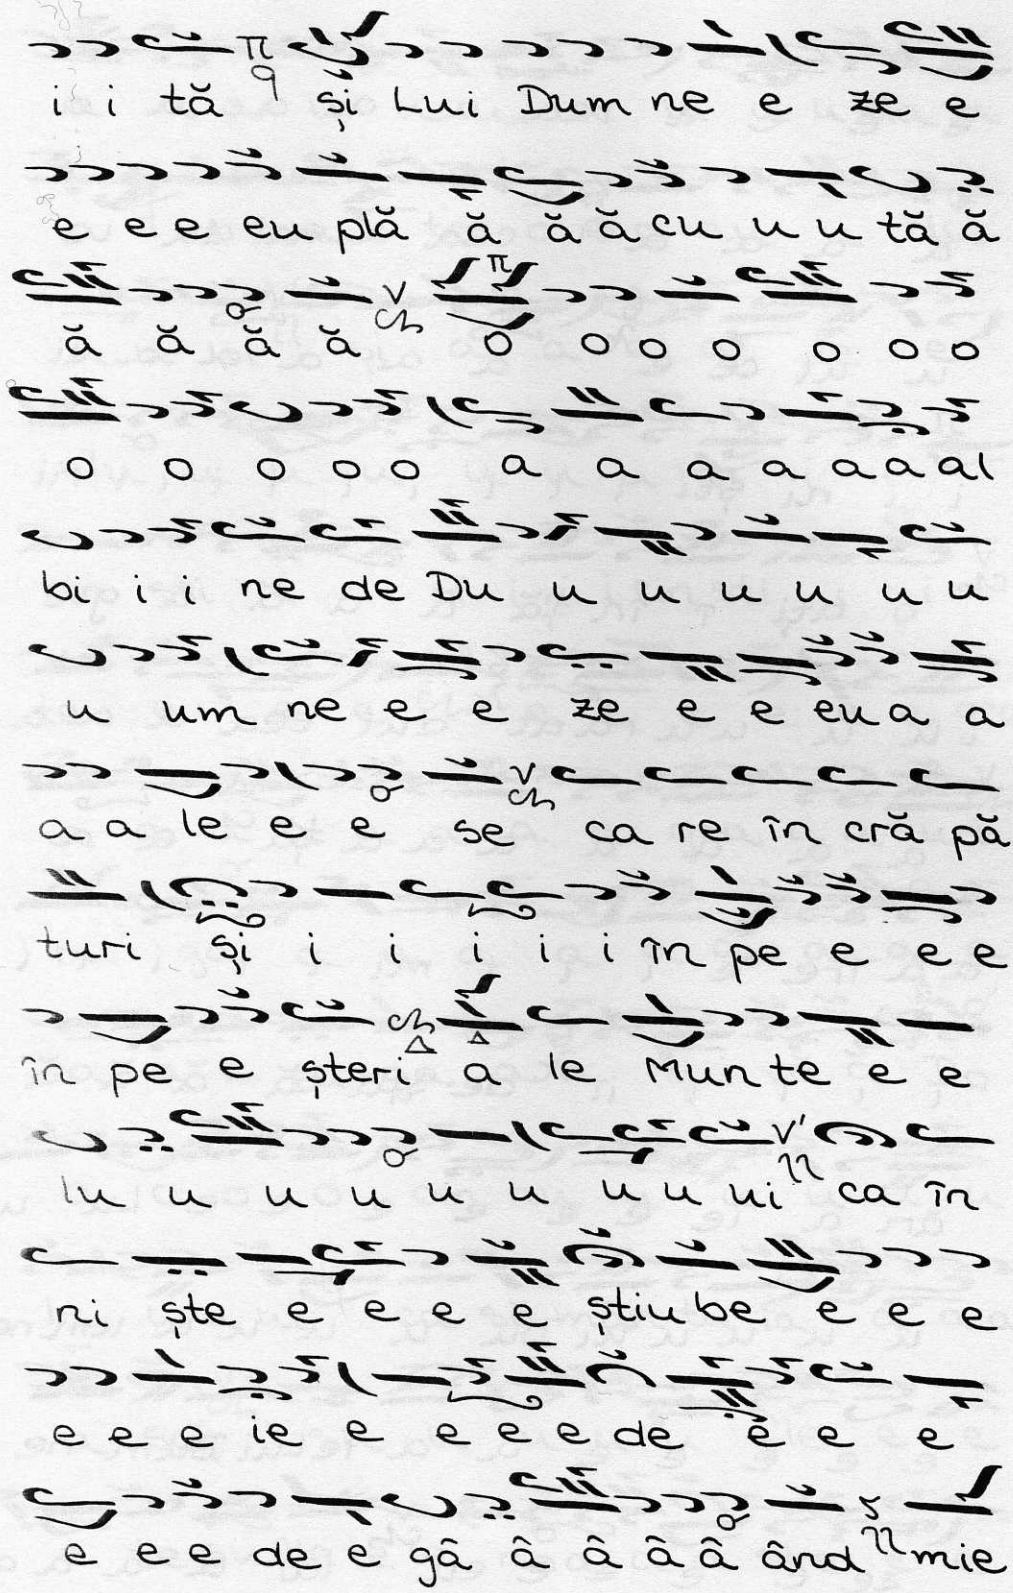 i i tă și Lui Dum ne e ze e
e e e eu plă ă ă ă cu u u tă ă
ă ă ă ă o o o o o o o
o o o o o a a a a a a al
bi i i ne de Du u u u u u u
u um ne e e ze e e eu a a
a a le e e se ca re în cră pă
turi și i i i i i în pe e e e
în pe e șteri a le Mun te e e
lu u u u u u u u ui ca în
ni ște e e e e știu be e e e
e e e ie e e e e de e e e
e e e de e gâ â â â â ând mie